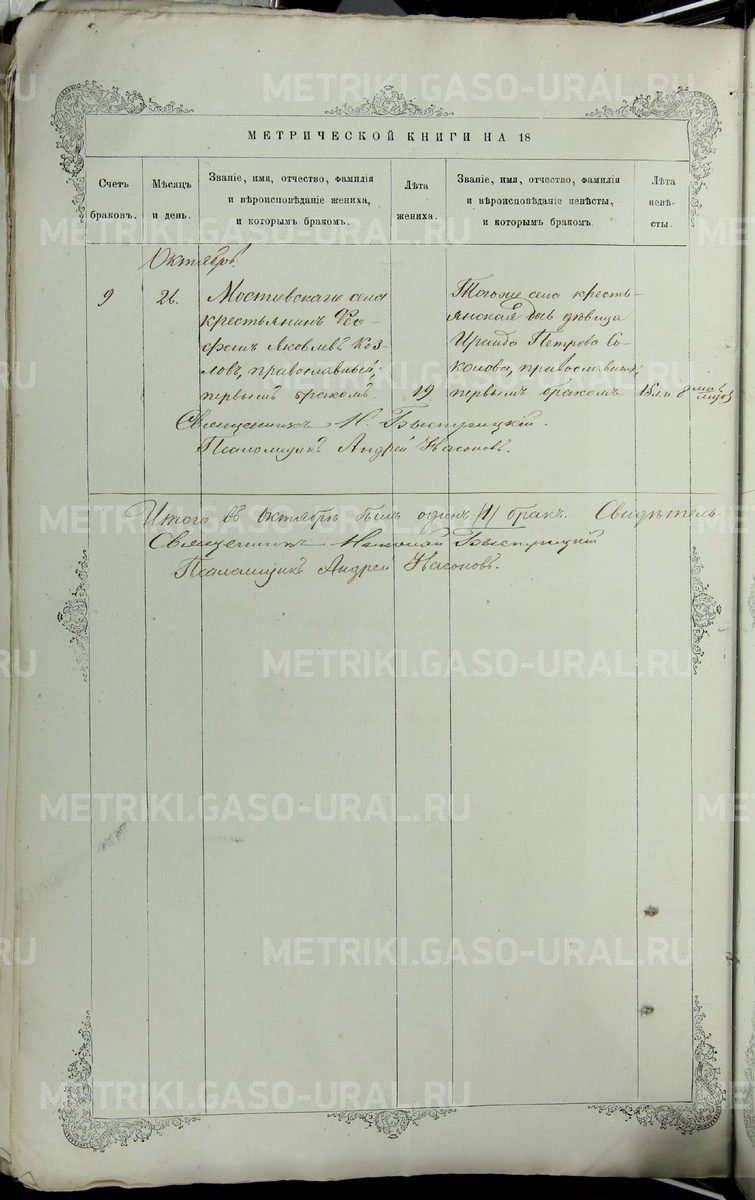 МЕТРИЧЕСКОЙ КНИГИ НА 18
Счетъ браковъ.
Мѣсяцъ и день.
Званіе, имя, отчество, фамилія
и вѣроисповѣданіе жениха,
и которымъ бракомъ.
Лѣта жениха.
Званіе, имя, отчество, фамилія
и вѣроисповѣданіе невѣсты,
и которымъ бракомъ.
Лѣта невѣ-
сты.
Октябрь.
9
26.
Мостовскаго села
крестьянинъ Фео-
фанъ Яковлевъ Коз-
ловъ, православный,
первымъ бракомъ.
19
Тогоже села кресть-
янская дочь дѣвица
Ираида Петрова Со-
колова, православная;
первымъ бракомъ
15 л. и 8 мѣсяцовъ
Священникъ Н. Быстрицкій.
Псаломщикъ Андрей Насоновъ.
Итого въ октябрѣ былъ одинъ /1/ бракъ. Свидѣтель-
Священникъ Николай Быстрицкій
Псаломщикъ Андрей Насоновъ.
METRIKI.GASO-URAL.RU